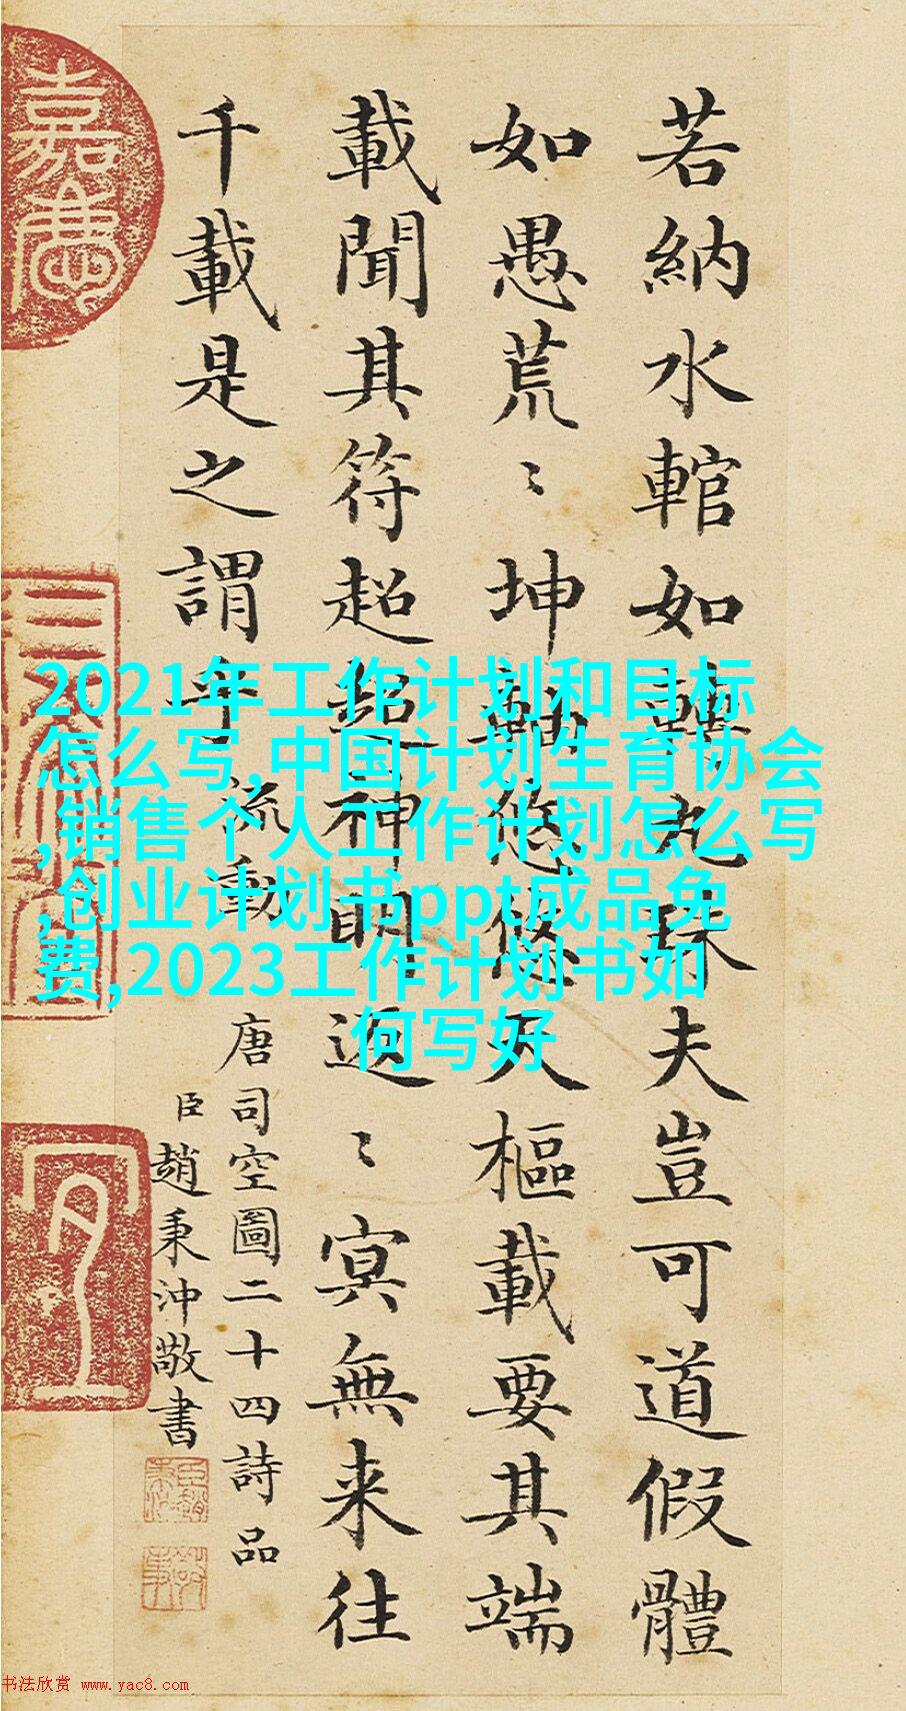 若納水輨如轉丸珠夫豈可道假體
如愚荒〻坤軸悠悠天樞載要其端
載聞其符超超神明返〻冥無来往
千載是之謂乎 流動
唐司空圖二十四詩品
臣趙秉沖敬書
嘉慶
2021年工作计划和目标
怎么写,中国计划生育协会
,销售个人工作计划怎么写
,创业计划书ppt成品免
费,2023工作计划书如
何写好
书法欣赏 www.yac8.com